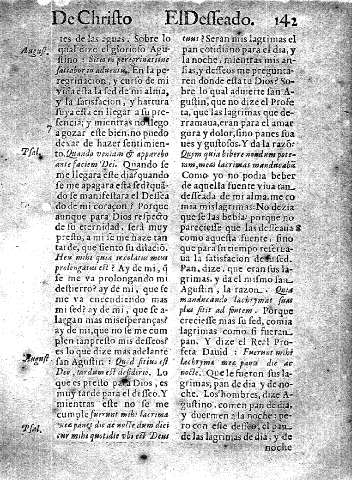 De Christo El Desseado. 142
tes de las aguas. Sobre lo
qual dize el glorioso Agu-
August. stino: Sitio in peregrinatione
satiabor in aduentu. En la pe-
regrinacion, y curso de mi
vida està la sed de mi alma,
y la satisfacion, y hartura
suya està en llegar a su pre-
sencia; y mientras no llego
a gozar este bien, no puedo
dexar de hazer sentimiento.
Psal. Quando veniam & apparebo
ante faciem Dei. Quando se
me llegara este dia? quando
se me apagara esta sed? quãdo
se manifestara el Dessea
do de mi coraçon? Porque
aunque para Dios respecto
de su eternidad, serà muy
presto, a mi se me haze tan
tarde, que siento su dilaciõ.
Heu mihi quia incolatus meus
prolongatus est? Ay de mi, q̃
se me va prolongando mi
destierro? ay de mi, que se
me va encendiendo mas
mi sed? ay de mi, que se a-
largan mas mis esperanças?
ay de mi, que no se me cum
plen tan presto mis desseos?
es lo que dize mas adelante
August. san Agustin: Quod sitius est
Deo, tardum est desiderio. Lo
que es presto para Dios, es
muy tarde para el desseo. Y
mientras este no se me
cumple fuerunt mihi lacrimæ
meæ panes die ac nocte dum dici
Psal. tur mihi quotidie vbi est Deus
tuus? Seran mis lagrimas el
pan cotidiano para el dia, y
la noche, mientras mis an-
sias, y desseos me pregunta-
ren donde esta tu Dios? So-
bre lo qual aduierte san A-
gustin, que no dize el Profe-
ta, que las lagrimas que de-
rramaua, eran para el amar
gura y dolor, sino panes sua
ues y gustosos. Y da la razõ:
Quum quia bibere nondum pote-
ram, meas lacrimas manducabã.
Como yo no podia beber
de aquella fuente viua tan
desseada de mi alma, me co
mia mis lagrimas. No dezia
que se las bebia: porque no
pareciesse que las desseaua
como aquella fuente, sino
que para su tiempo reserua-
ua la satisfacion de su sed.
Pan, dize, que eran sus la-
grimas, y dà el mismo san
Agustin, la razon. Quia
manducando lachrymas suas
plus sitit ad fontem. Porque
creciesse mas su sed, comia
lagrimas como si fueran
pan. Y dize el Real Profe
ta Dauid: Fuerunt mihi
lachrymæ meæ panes die ac
nocte. Que le fueron sus la-
grimas, pan de dia y de no-
che. Los hombres, dize A-
gustino, comen pan de dia,
y duermen a la noche: pe-
ro con este desseo, el pan
de las lagrimas de dia, y de
noche